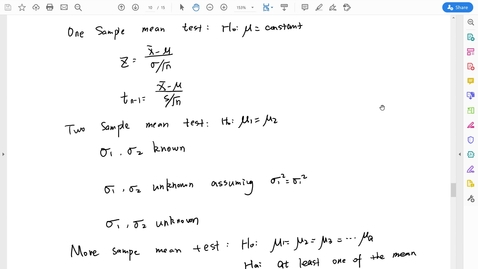 One Sample mean test: H₀: μ = constant
Z = x̄-μ / σ/√n
tₙ₋₁ = x̄-μ / s/√n
Two Sample mean test: H₀: μ₁ = μ₂
σ₁, σ₂ known
σ₁, σ₂ unknown assuming σ₁² = σ₁²
σ₁, σ₂ unknown
More sampe mean test: H₀: μ₁ = μ₂ = μ₃ = ... μₐ
Ha: at least one of the mean